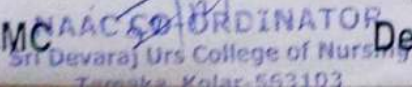 MC NAAC CO-ORDINATOR De
Sri Devaraj Urs College of Nursing
Tamaka, Kolar-563103